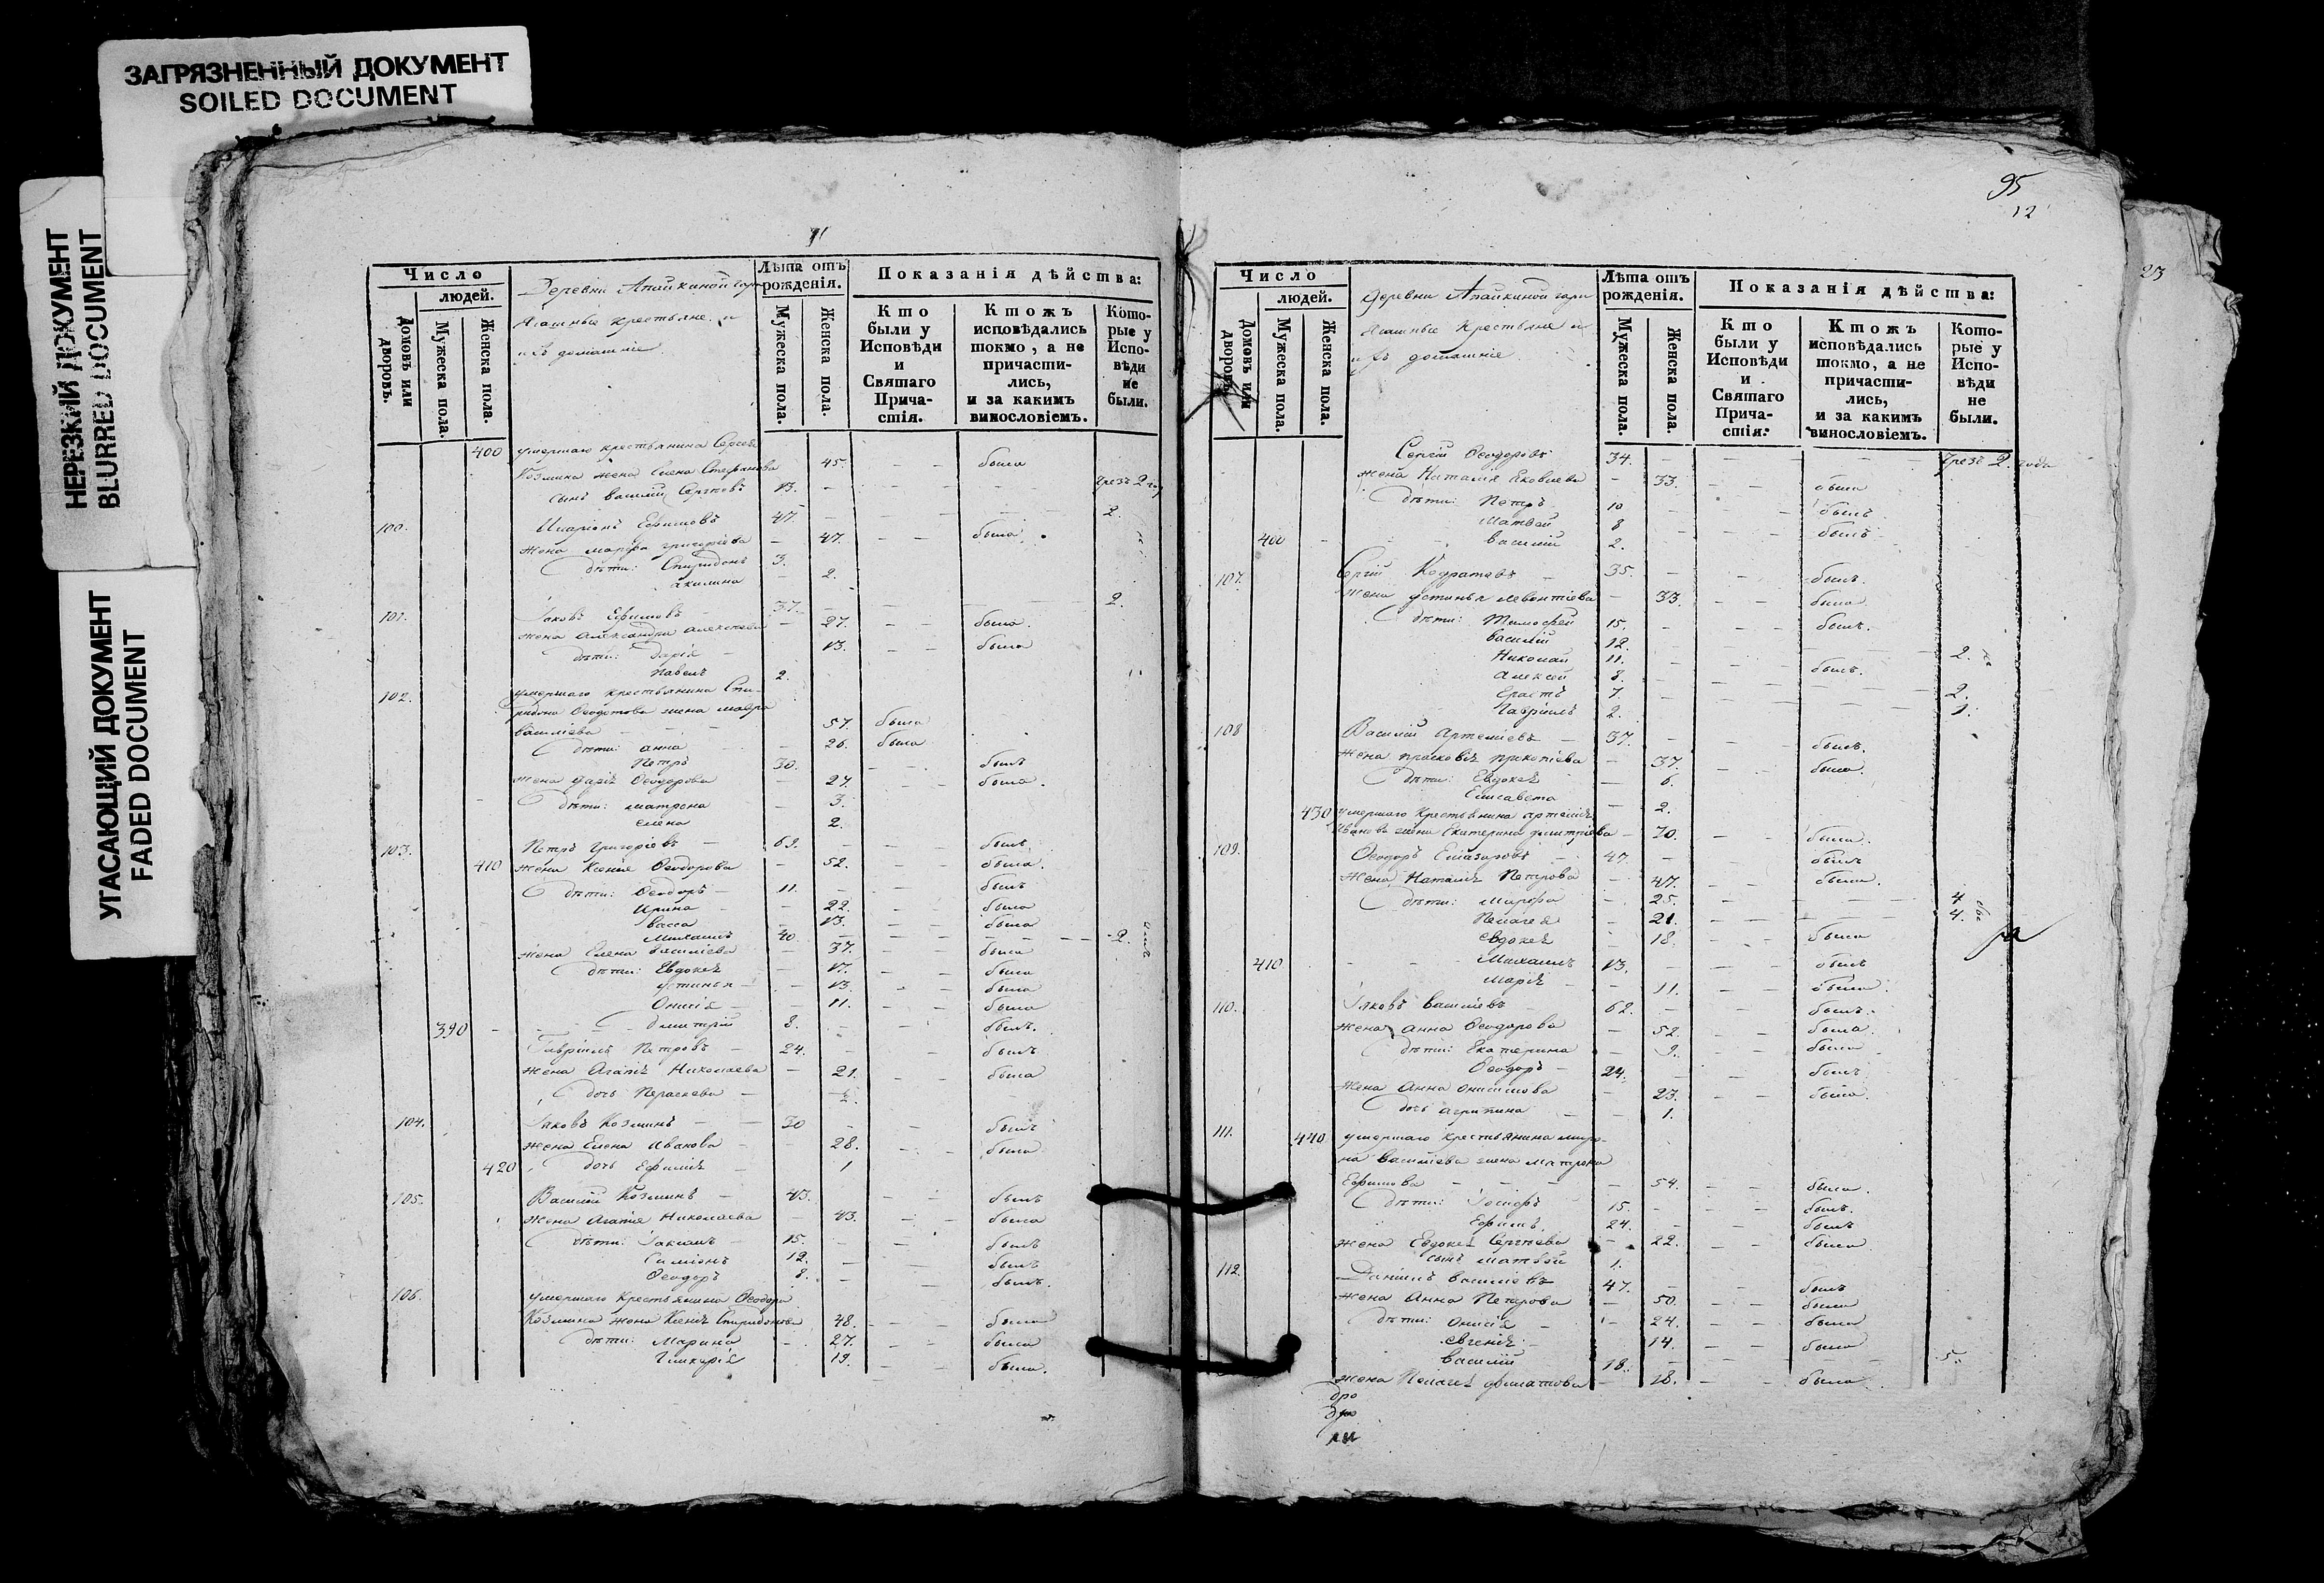 ЗАГРЯЗНЕННЫЙ ДОКУМЕНТ
SOILED DOCUMENT
НЕРЕЗКИЙ ДОКУМЕНТ
BLURRED DOCUMENT
УГАСАЮЩИЙ ДОКУМЕНТ
FADED DOCUMENT
Число
людей.
Домовъ или дворовъ.
Мужеска пола.
Женска пола.
Деревни Апайкиной гари
Ясашные крестьяне и
ихъ домашніе
Лѣта отъ рожденія.
Мужеска пола.
Женска пола.
Показанія дѣйства:
Кто были у Исповѣди и Святаго Причастія.
Ктожъ исповѣдались токмо, а не причастились, и за какимъ винословіемъ.
Которые у Исповѣди не были.
400 умершаго крестьянина Сергея
Козмина жена Елена Стефанова 45. была
сынъ Василій Сергѣевъ 13. чрезъ 2 го
100. Иларіонъ Ефимовъ 47. 2.
жена Марфа Григорьева 47. была
дѣти: Спиридонъ 3.
Акилина 2.
101. Іаковъ Ефимовъ 37. 2.
жена Александра Алексѣева 27. была.
дѣти: Дарія 13. была
Павелъ 2.
102. умершаго крестьянина Спи-
ридона Ѳеодотова жена Мавра
Василіева 57. была
дѣти: Анна 26. была
Петръ 30. былъ
жена Дарія Ѳеодорова 27. была.
дѣти: Матрона 3.
Елена 2.
103. Петръ Григоріевъ 69. былъ
410 жена Ксенія Ѳеодорова 52. была.
дѣти: Ѳеодоръ 11. былъ
Ирина 22. была
Васса 13. была
Михаилъ 40. 2.
жена Елена Василіева 37. была
дѣти: Евдокія 17. была
Устинья 13. была
Онисія 11. была
390 Дмитрій 8. былъ.
Гавріилъ Петровъ 24. былъ
жена Агапія Николаева 21. была
дочь Параскева
104. Іаковъ Козминъ 30 былъ
жена Елена Иванова 28. была
420 дочь Ефимія 1
105. Василій Козминъ 43. былъ
жена Агапія Николаева 43. была
дѣти: Іакимъ 15. былъ
Симіонъ 12. былъ
Ѳеодоръ 8. былъ.
106. умершаго крестьянина Ѳеодора
Козмина жена Ксенія Спиридонова 48. была
дѣти: Марина 27. была
Гликерія 19. была.
95
12
23
Число
людей.
Домовъ или дворовъ.
Мужеска пола.
Женска пола.
Деревни Апайкиной гари
Ясашные крестьяне и
ихъ домашніе
Лѣта отъ рожденія.
Мужеска пола.
Женска пола.
Показанія дѣйства:
Кто были у Исповѣди и Святаго Причастія.
Ктожъ исповѣдались токмо, а не причастились, и за какимъ винословіемъ.
Которые у Исповѣди не были.
Сергій Ѳеодоровъ 34. чрезъ 2. года
жена Наталія Яковлева 33. была
дѣти: Петръ 10 былъ
Матвей 8 былъ
400 Василій 2.
107. Сергій Кодратовъ 35. былъ.
жена Устинья Левонтіева 33. была
дѣти: Тимофей 15. былъ.
Василій 12.
Николай 11. 2.
Алексей 8. былъ.
Ерастъ 7. 2.
Гавріилъ 2. 1.
108 Василій Артеміевъ 37. былъ.
жена Прасковія Прокопіева 37. была.
дѣти: Евдокія 6.
Елисавета 2.
430 умершаго крестьянина Артемія
Иванова жена Екатерина Димитріева 70. была.
109. Ѳеодоръ Елиазаровъ 47. былъ
жена Наталія Петрова 47. была.
дѣти: Марфа 25. 4
Пелагея 21. 4.
Евдокія 18. была
410 Михаилъ 13. былъ
Марія 11. была.
110. Іаковъ Василіевъ 62. былъ.
жена Анна Ѳеодорова 52. была.
дѣти: Екатерина 9. была
Ѳеодоръ 24. былъ
жена Анна Онисимова 23. была.
дочь Агрипина 1.
111. 440 умершаго крестьянина Миро-
на Василіева жена Матрона
Ефимова 54. была.
дѣти: 15. былъ.
Ефимъ 24. былъ
жена Евдокія Сергѣева 22. была
сынъ Матвей 1.
112. Даніилъ Василіевъ 47. былъ
жена Анна Петрова 50. была
дѣти: Онисія 24. была
Евгенія 14. была
Василій 18. 5.
жена Пелагея Филатова 18. была.